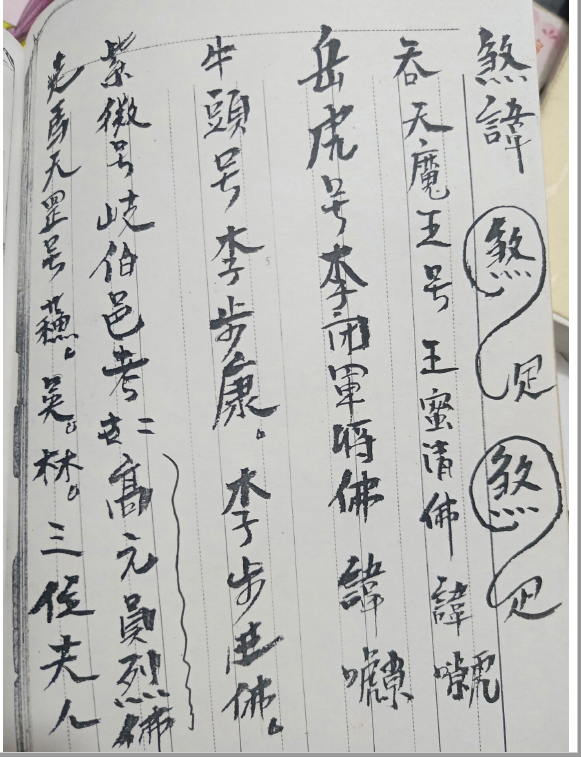 煞諱 煞 足 煞 足
吞天魔王号 王蜜清佛 諱
岳虎号 李 軍將佛 諱
牛頭号 李步康。李步 佛。
紫微号 岐伯邑考 高元員烈佛
天罡号 蘓。吳。林。三位夫人